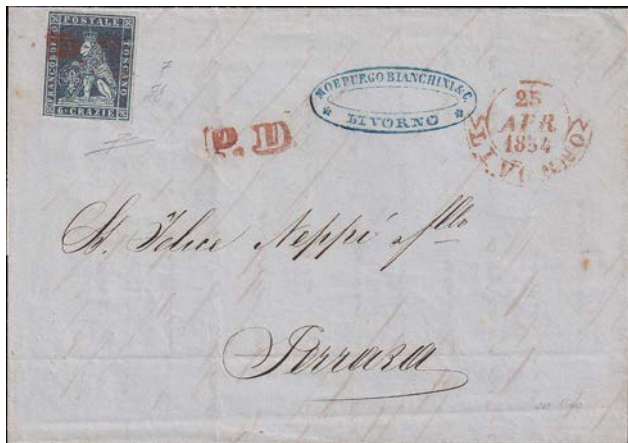 FRANCOBOLLO POSTALE TOSCANO
6 CRAZIE
MORPURGO BIANCHINI & C.
LIVORNO
P.D.
25
APR
1854
Felice Neppi
Ferrara